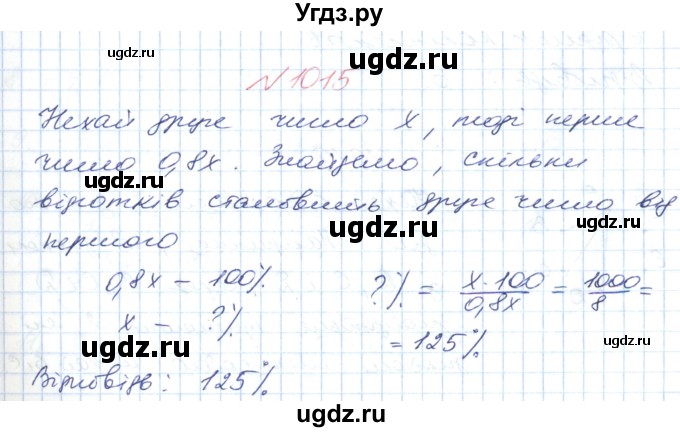 Угдз.ру
ugdz.ru ugdz.ru ugdz.ru
№ 1015
Нехай друге число x, тоді перше
число 0,8x. Знайдемо, скільки
ugdz.ru
відсотків становить друге число від
ugdz.ru ugdz.ru
першого
0,8x – 100% ?% = x·100/0,8x = 1000/8 =
ugdz.ru
x – ?% = 125%
ugdz.ru ugdz.ru
Відповідь: 125%
ugdz.ru